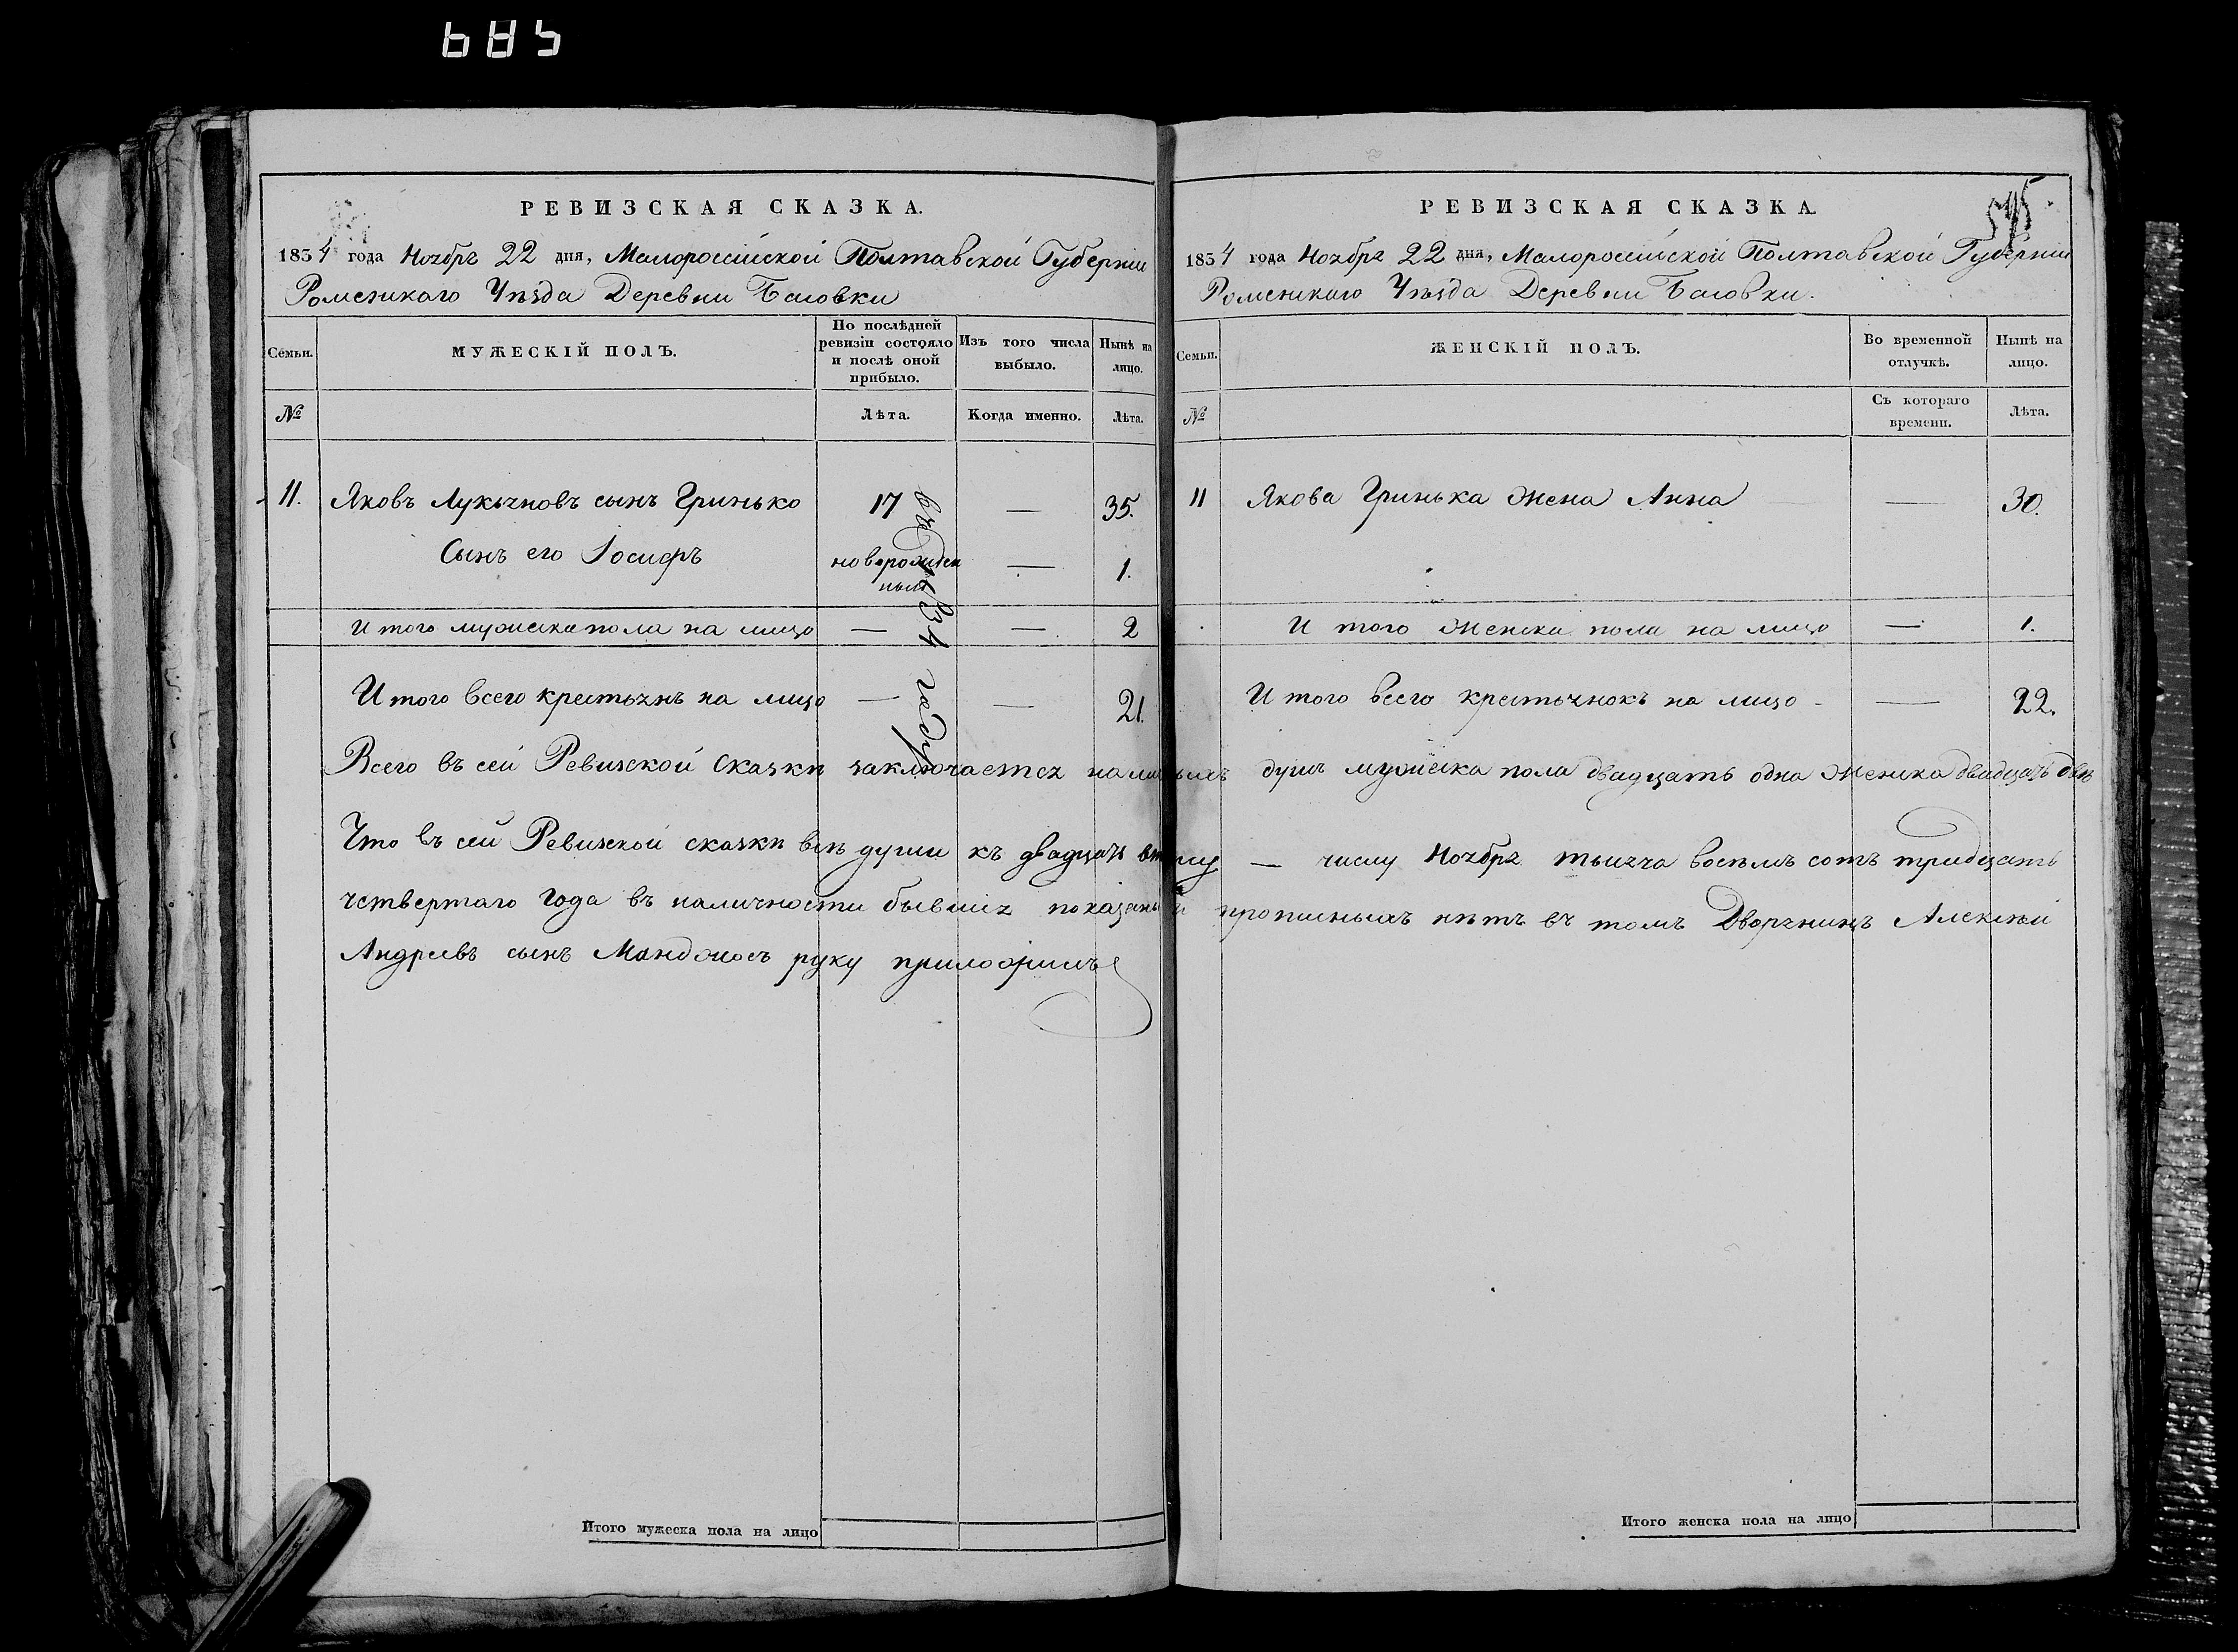 685
РЕВИЗСКАЯ СКАЗКА.
1834 года Ноября 22 дня, Малороссійской Полтавской Губерніи
Роменскаго Уѣзда Деревни Басовки
Семьи.
МУЖЕСКІЙ ПОЛЪ.
По послѣдней ревизіи состояло и послѣ оной прибыло.
Изъ того числа выбыло.
Нынѣ на лицо.
№
Лѣта.
Когда именно.
Лѣта.
11. Яковъ Лукьяновъ сынъ Гринько 17 — 35.
Сынъ его Іосифъ новорожденный — 1.
въ 1834 году
Итого мужеска пола на лицо — — 2
Итого всего крестьянъ на лицо — — 21.
РЕВИЗСКАЯ СКАЗКА.
1834 года Ноября 22 дня, Малороссійской Полтавской Губерніи
Роменскаго Уѣзда Деревни Басовки.
Семьи.
ЖЕНСКІЙ ПОЛЪ.
Во временной отлучкѣ.
Нынѣ на лицо.
№
Съ котораго времени.
Лѣта.
11 Якова Гринька жена Анна — 30.
Итого женска пола на лицо — 1.
Итого всего крестьянокъ на лицо — 22.
Всего въ сей Ревизской Сказкѣ заключается наличныхъ душъ мужеска пола двадцать одна женска двадцать двѣ
Что въ сей Ревизской сказкѣ всѣ души къ двадцать второму — числу Ноября тысяча восемь сотъ тридцать
четвертаго года въ наличности бывшія показаны и прописныхъ нѣтъ въ томъ Дворянинъ Алексѣй
Андреевъ сынъ руку приложилъ
Итого мужеска пола на лицо
Итого женска пола на лицо